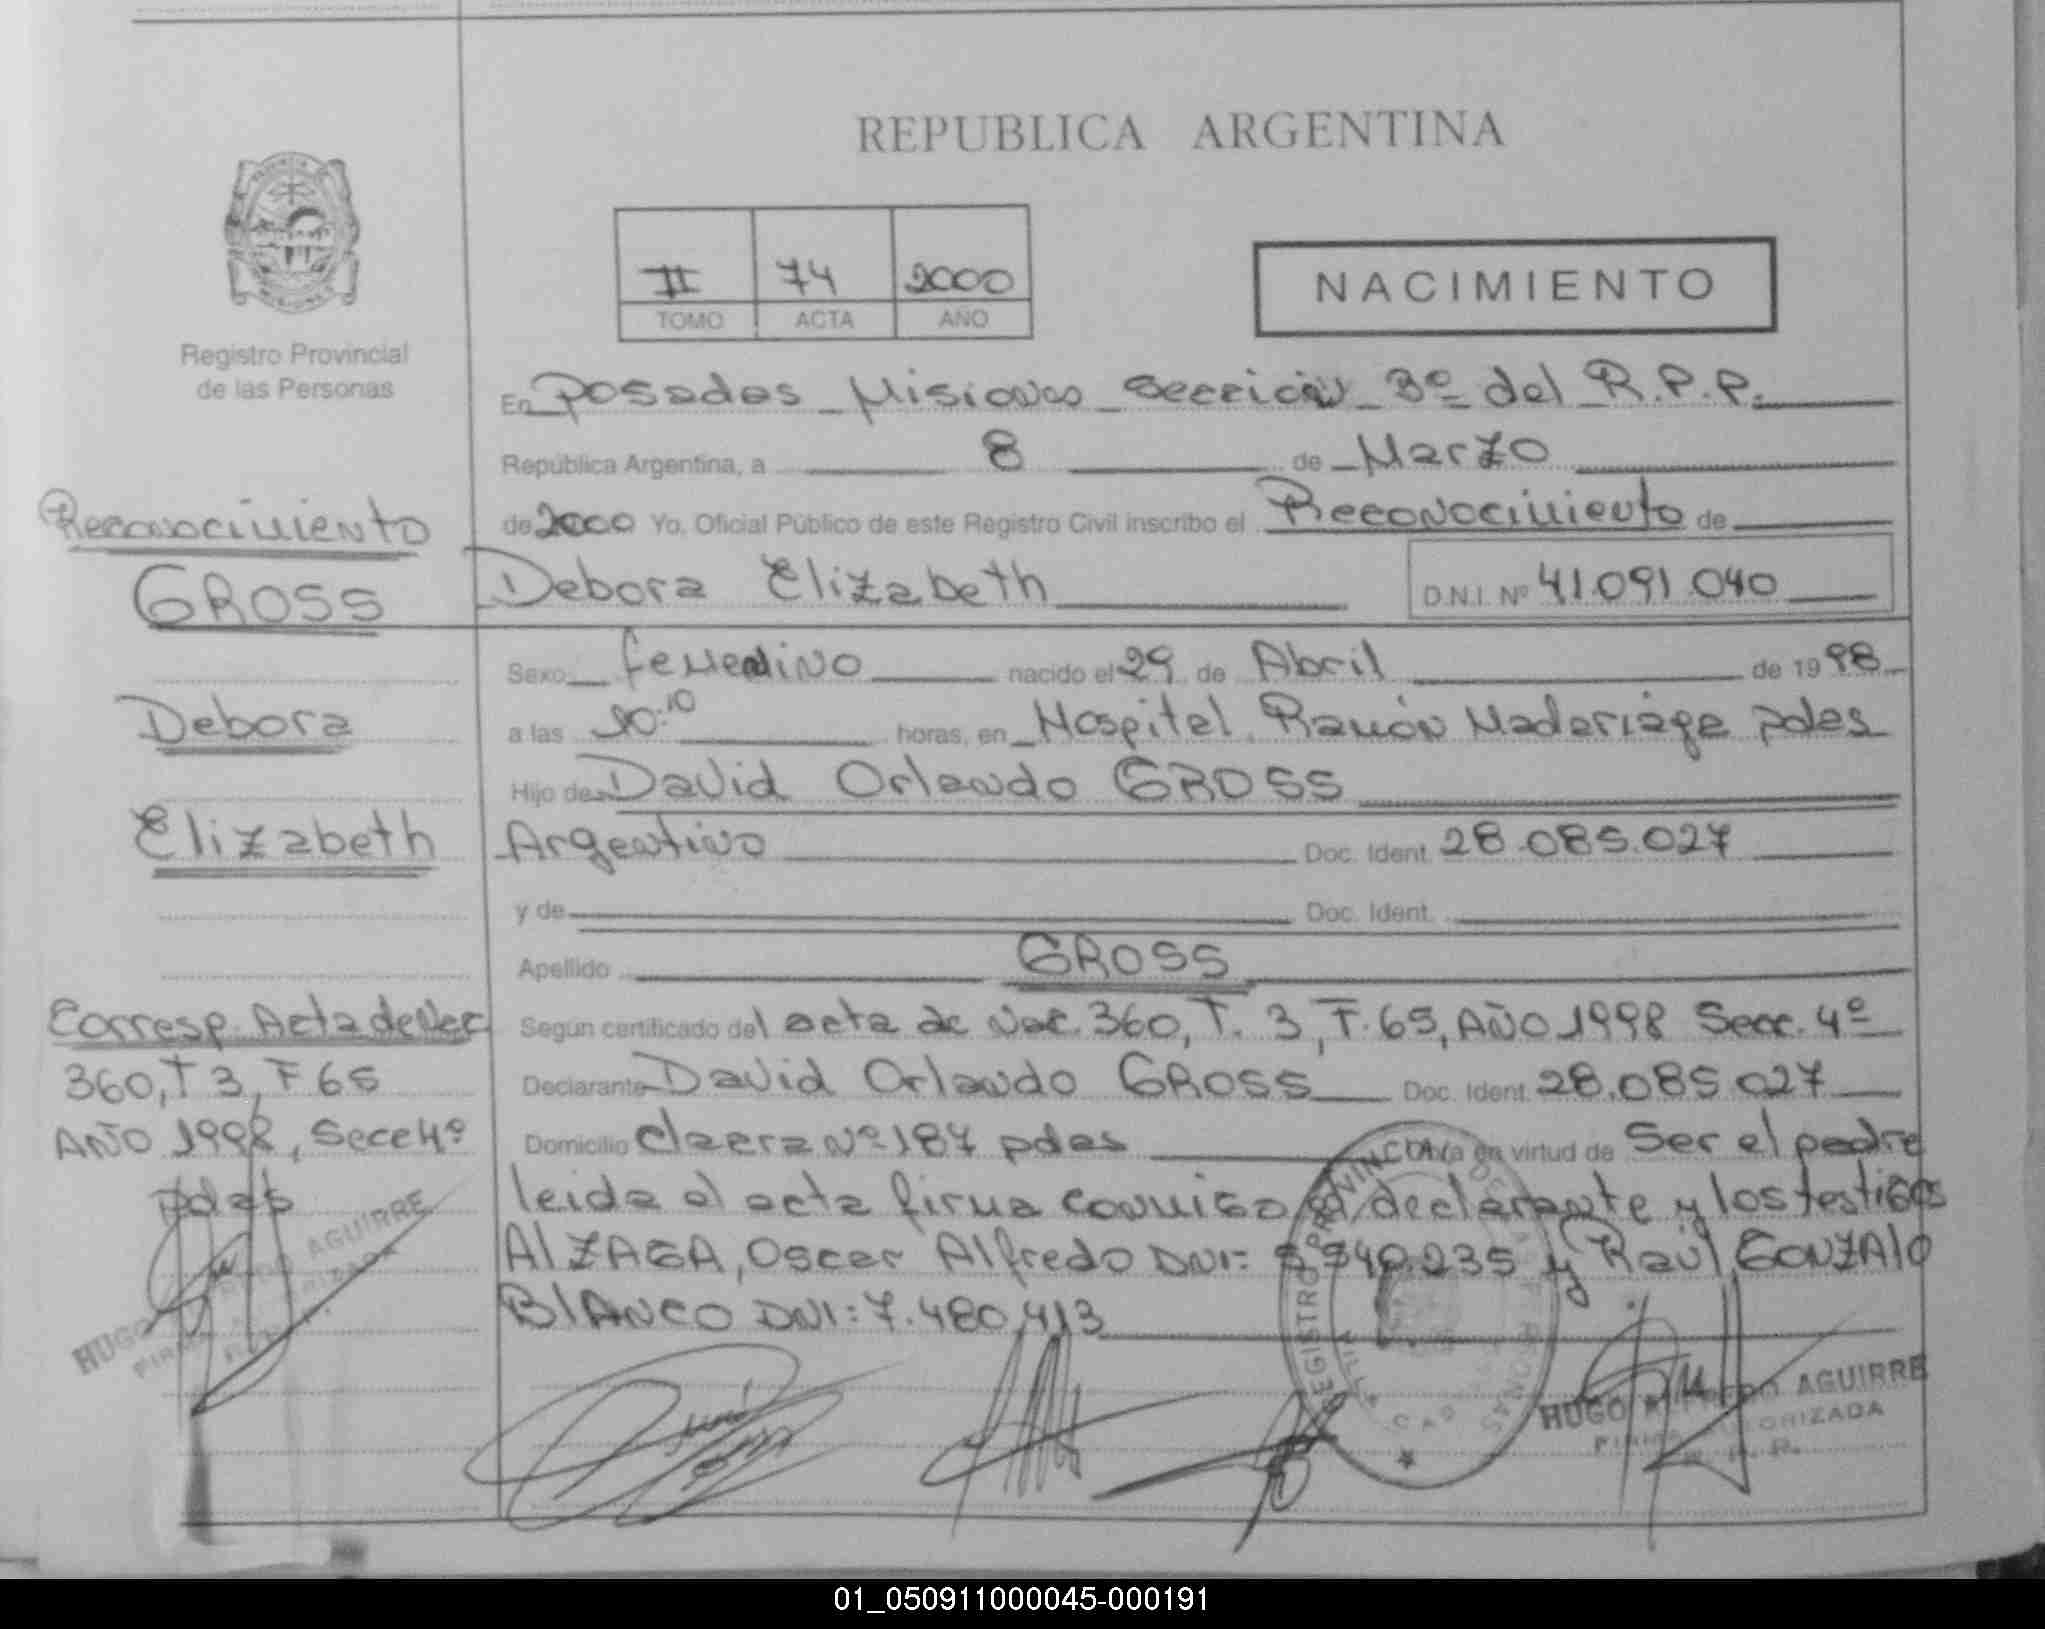 REPUBLICA ARGENTINA
II 74 2000
TOMO ACTA AÑO
NACIMIENTO
Registro Provincial
de las Personas
En Posadas Misiones Sección 3º del R.P.P.
República Argentina, a 8 de Marzo
de 2000 Yo, Oficial Público de este Registro Civil inscribo el Reconocimiento de
Debora Elizabeth D.N.I. Nº 41.091.040
Reconocimiento
GROSS
Debora
Elizabeth
Sexo femenino nacido el 29 de Abril de 1998
a las horas, en Hospital Ramón Madariaga pdas
Hijo de David Orlando GROSS
Argentino Doc. Ident. 28.085.027
y de Doc. Ident.
Apellido GROSS
Corresp. Acta de Nac
360, T 3, F 65
AÑO 1998, Secc 4º
pdas
Según certificado del acta de Nac. 360, T. 3, F. 65, AÑO 1998 Secc. 4º
Declarante David Orlando GROSS Doc. Ident. 28.085.027
Domicilio Nº 187 pdas en virtud de Ser el padre
leida el acta firma conmigo el declarante y los testigos
AlZAGA, Oscar Alfredo DNI: y Raúl GONZAlO
BlANCO DNI: 7.480.413
HUGO AGUIRRE
HUGO AGUIRRE
FIRMA AUTORIZADA
REGISTRO PROVINCIAL
01_050911000045-000191